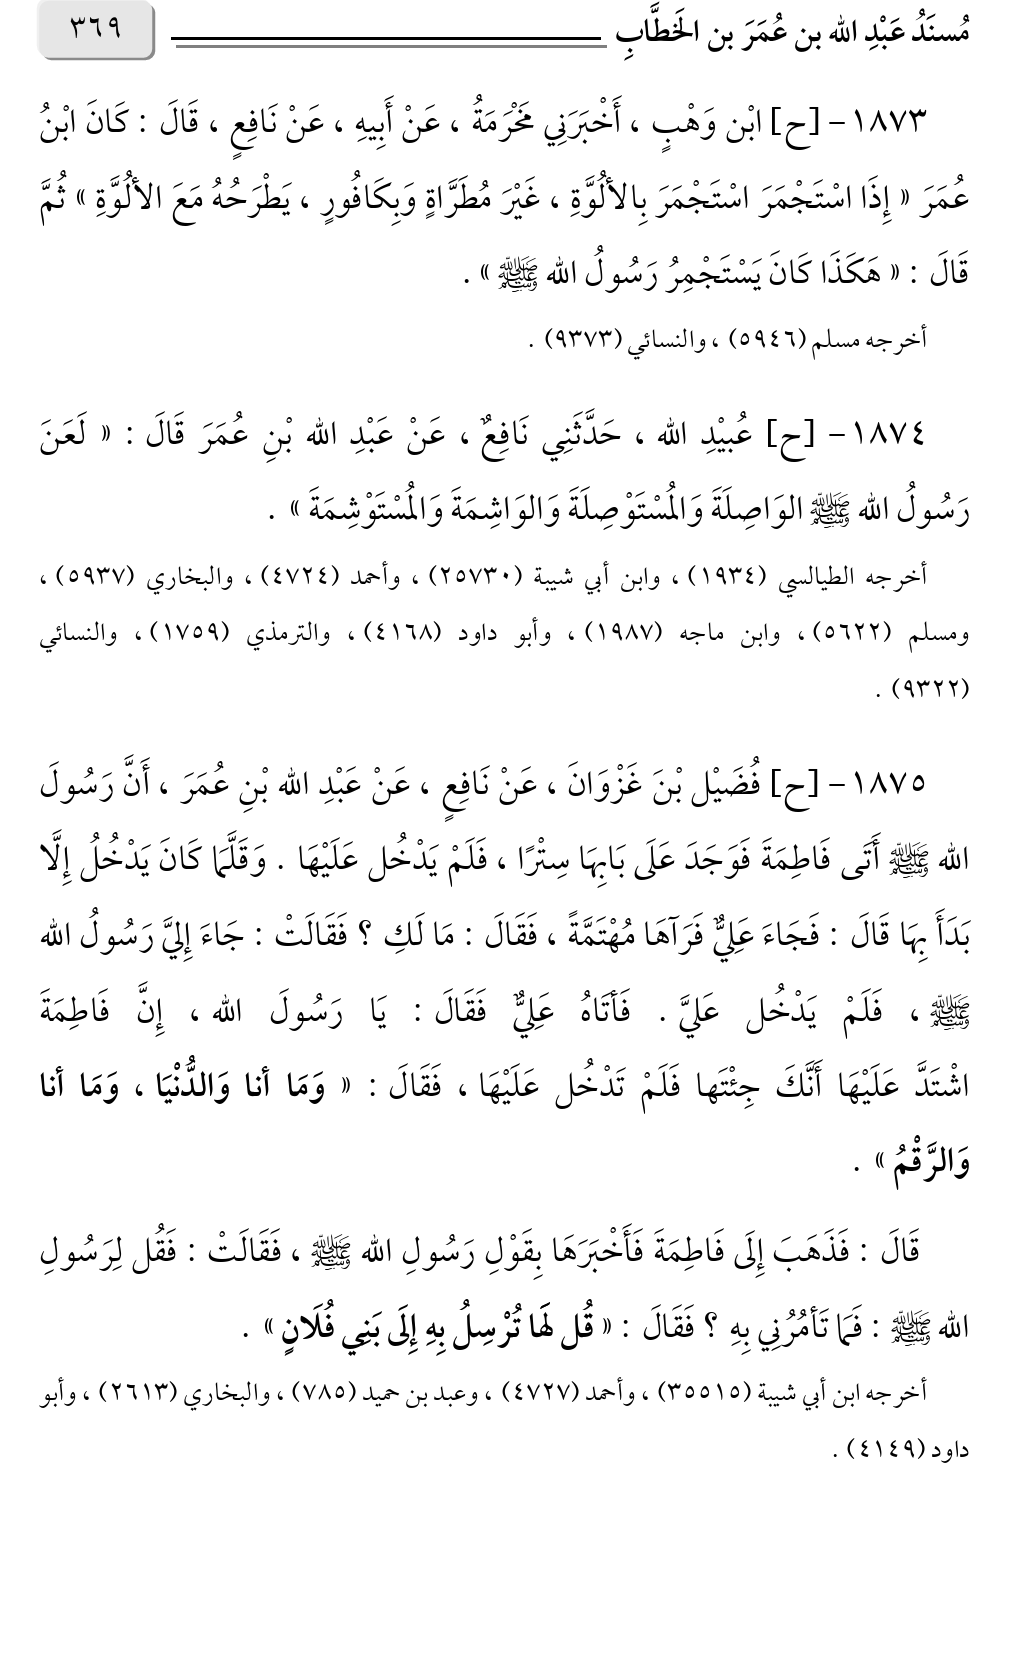 مُسنَدُ عَبْدِ الله بن عُمَرَ بن الخَطَّابِ ٣٦٩
١٨٧٣ - [ح] ابْن وَهْبٍ ، أَخْبَرَنِي مَخْرَمَةُ ، عَنْ أَبِيهِ ، عَنْ نَافِعٍ ، قَالَ : كَانَ ابْنُ
عُمَرَ « إِذَا اسْتَجْمَرَ اسْتَجْمَرَ بِالألُوَّةِ ، غَيْرَ مُطَرَّاةٍ وَبِكَافُورٍ ، يَطْرَحُهُ مَعَ الألُوَّةِ » ثُمَّ
قَالَ : « هَكَذَا كَانَ يَسْتَجْمِرُ رَسُولُ الله ﷺ » .
أخرجه مسلم (٥٩٤٦) ، والنسائي (٩٣٧٣) .
١٨٧٤ - [ح] عُبيْدِ الله ، حَدَّثَنِي نَافِعٌ ، عَنْ عَبْدِ الله بْنِ عُمَرَ قَالَ : « لَعَنَ
رَسُولُ الله ﷺ الوَاصِلَةَ وَالمُسْتَوْصِلَةَ وَالوَاشِمَةَ وَالمُسْتَوْشِمَةَ » .
أخرجه الطيالسي (١٩٣٤) ، وابن أبي شيبة (٢٥٧٣٠) ، وأحمد (٤٧٢٤) ، والبخاري (٥٩٣٧) ،
ومسلم (٥٦٢٢) ، وابن ماجه (١٩٨٧) ، وأبو داود (٤١٦٨) ، والترمذي (١٧٥٩) ، والنسائي
(٩٣٢٢) .
١٨٧٥ - [ح] فُضَيْل بْنَ غَزْوَانَ ، عَنْ نَافِعٍ ، عَنْ عَبْدِ الله بْنِ عُمَرَ ، أَنَّ رَسُولَ
الله ﷺ أَتَى فَاطِمَةَ فَوَجَدَ عَلَى بَابِهَا سِتْرًا ، فَلَمْ يَدْخُل عَلَيْهَا . وَقَلَّمَا كَانَ يَدْخُلُ إِلَّا
بَدَأَ بِهَا قَالَ : فَجَاءَ عَلِيٌّ فَرَآهَا مُهْتَمَّةً ، فَقَالَ : مَا لَكِ ؟ فَقَالَتْ : جَاءَ إِليَّ رَسُولُ الله
ﷺ ، فَلَمْ يَدْخُل عَليَّ . فَأتَاهُ عَلِيٌّ فَقَالَ : يَا رَسُولَ الله ، إِنَّ فَاطِمَةَ
اشْتَدَّ عَلَيْهَا أَنَّكَ جِئْتَها فَلَمْ تَدْخُل عَلَيْهَا ، فَقَالَ : « وَمَا أنا وَالدُّنْيَا ، وَمَا أنا
وَالرَّقْمُ » .
قَالَ : فَذَهَبَ إِلَى فَاطِمَةَ فَأَخْبَرَهَا بِقَوْلِ رَسُولِ الله ﷺ ، فَقَالَتْ : فَقُل لِرَسُولِ
الله ﷺ : فَمَا تَأمُرُنِي بِهِ ؟ فَقَالَ : « قُل لَهَا تُرْسِلُ بِهِ إِلَى بَنِي فُلَانٍ » .
أخرجه ابن أبي شيبة (٣٥٥١٥) ، وأحمد (٤٧٢٧) ، وعبد بن حميد (٧٨٥) ، والبخاري (٢٦١٣) ، وأبو
داود (٤١٤٩) .